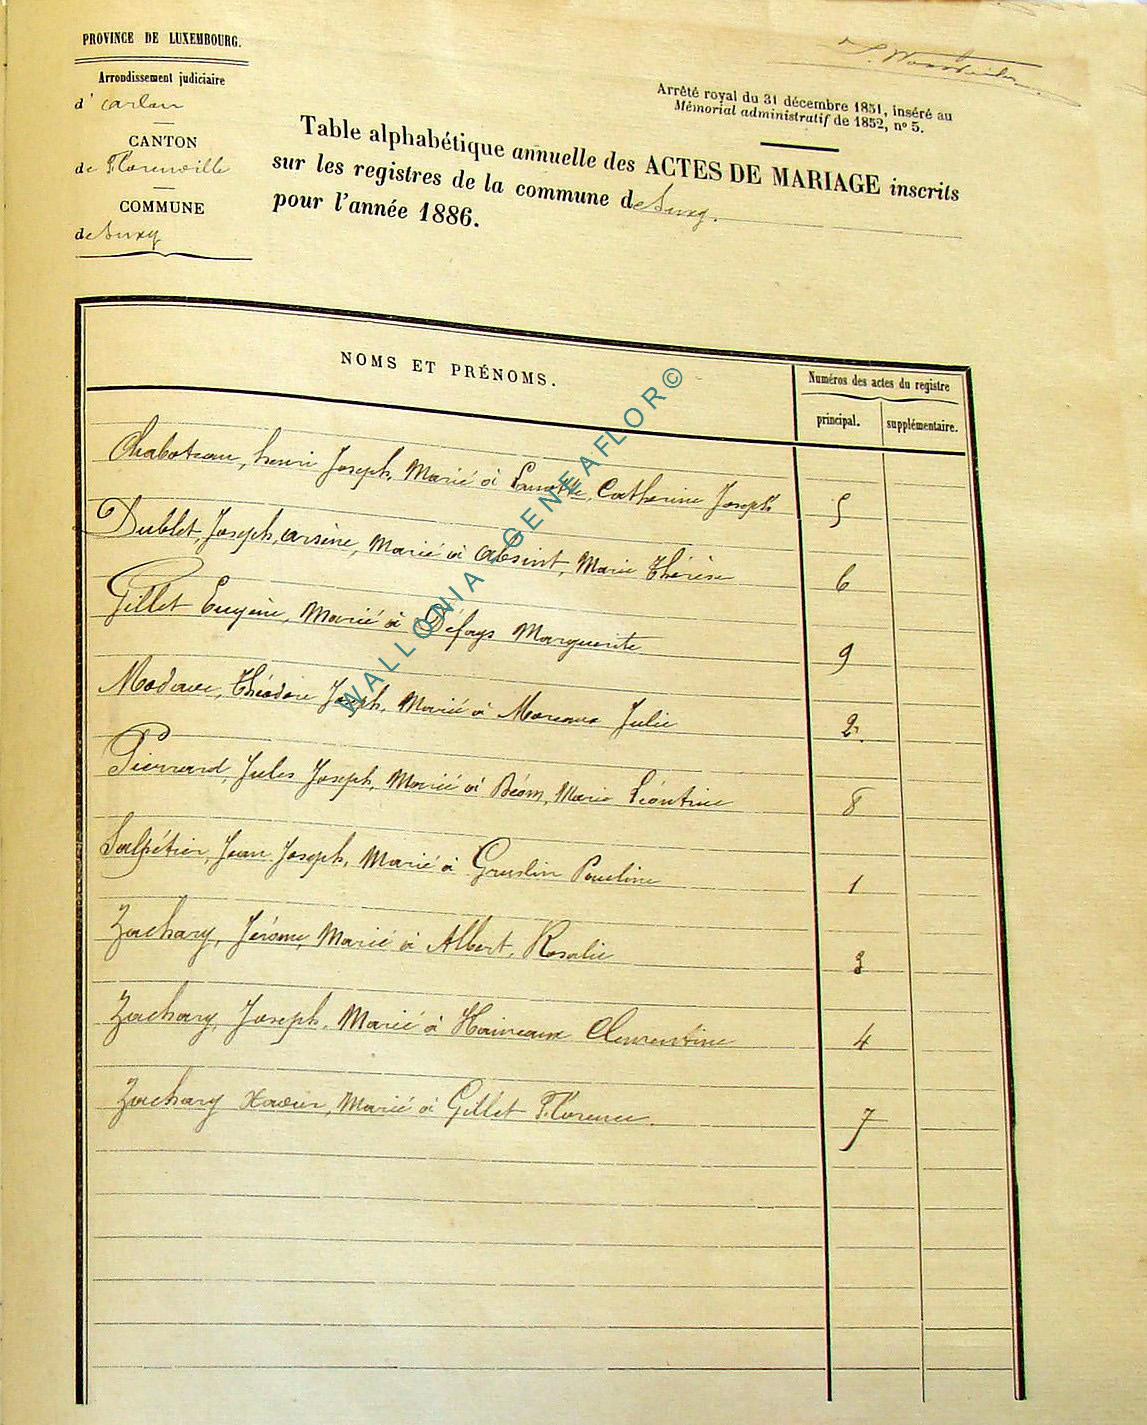 PROVINCE DE LUXEMBOURG.
Arrondissement judiciaire
d'arlon
CANTON
de Florenville
COMMUNE
de Suxy
Arrêté royal du 31 décembre 1851, inséré au
Mémorial administratif de 1852, n° 5.
Table alphabétique annuelle des ACTES DE MARIAGE inscrits
sur les registres de la commune de Suxy.
pour l'année 1886.
NOMS ET PRÉNOMS.
Numéros des actes du registre
principal.
supplémentaire.
Chaboteau, henri Joseph, Marié à Catherine Joseph 5
Dublet, Joseph, arsène, Marié à absint, Marie Thérèse 6
Gillet Eugène, Marié à Défays Marguerite 9
Théodore Joseph, Marié à Julie 2.
Pierrard, Jules Joseph, Marié à Marie Léontine 8
Salpétier, Jean Joseph, Marié à Gruslin Pauline 1
Zachary, Jérome, Marié à Albert, Rosalie 3
Zachary, Joseph, Marié à Haineaux Clementine 4
Zachary Xavier, Marié à Gillet Florence. 7
WALLONIA - GENEAFLOR©